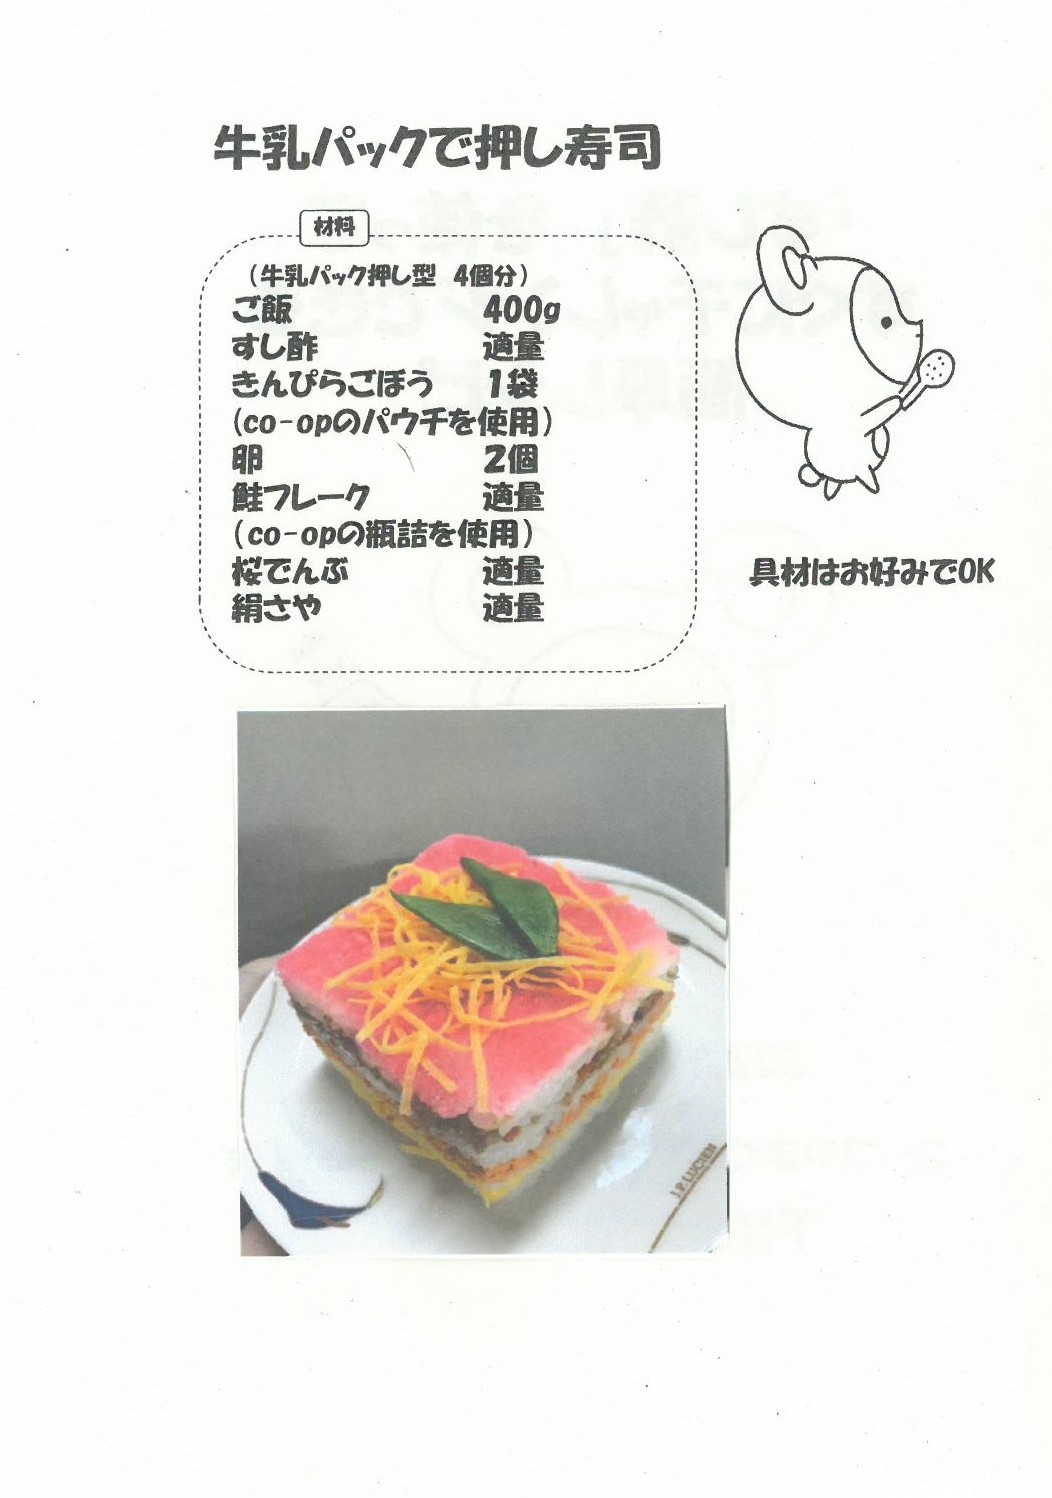 牛乳パックで押し寿司
材料
（牛乳パック押し型　4個分）
ご飯　400g
すし酢　適量
きんぴらごぼう　1袋
(co-opのパウチを使用)
卵　2個
鮭フレーク　適量
(co-opの瓶詰を使用)
桜でんぶ　適量
絹さや　適量
具材はお好みでOK
J.P.LUCHEN